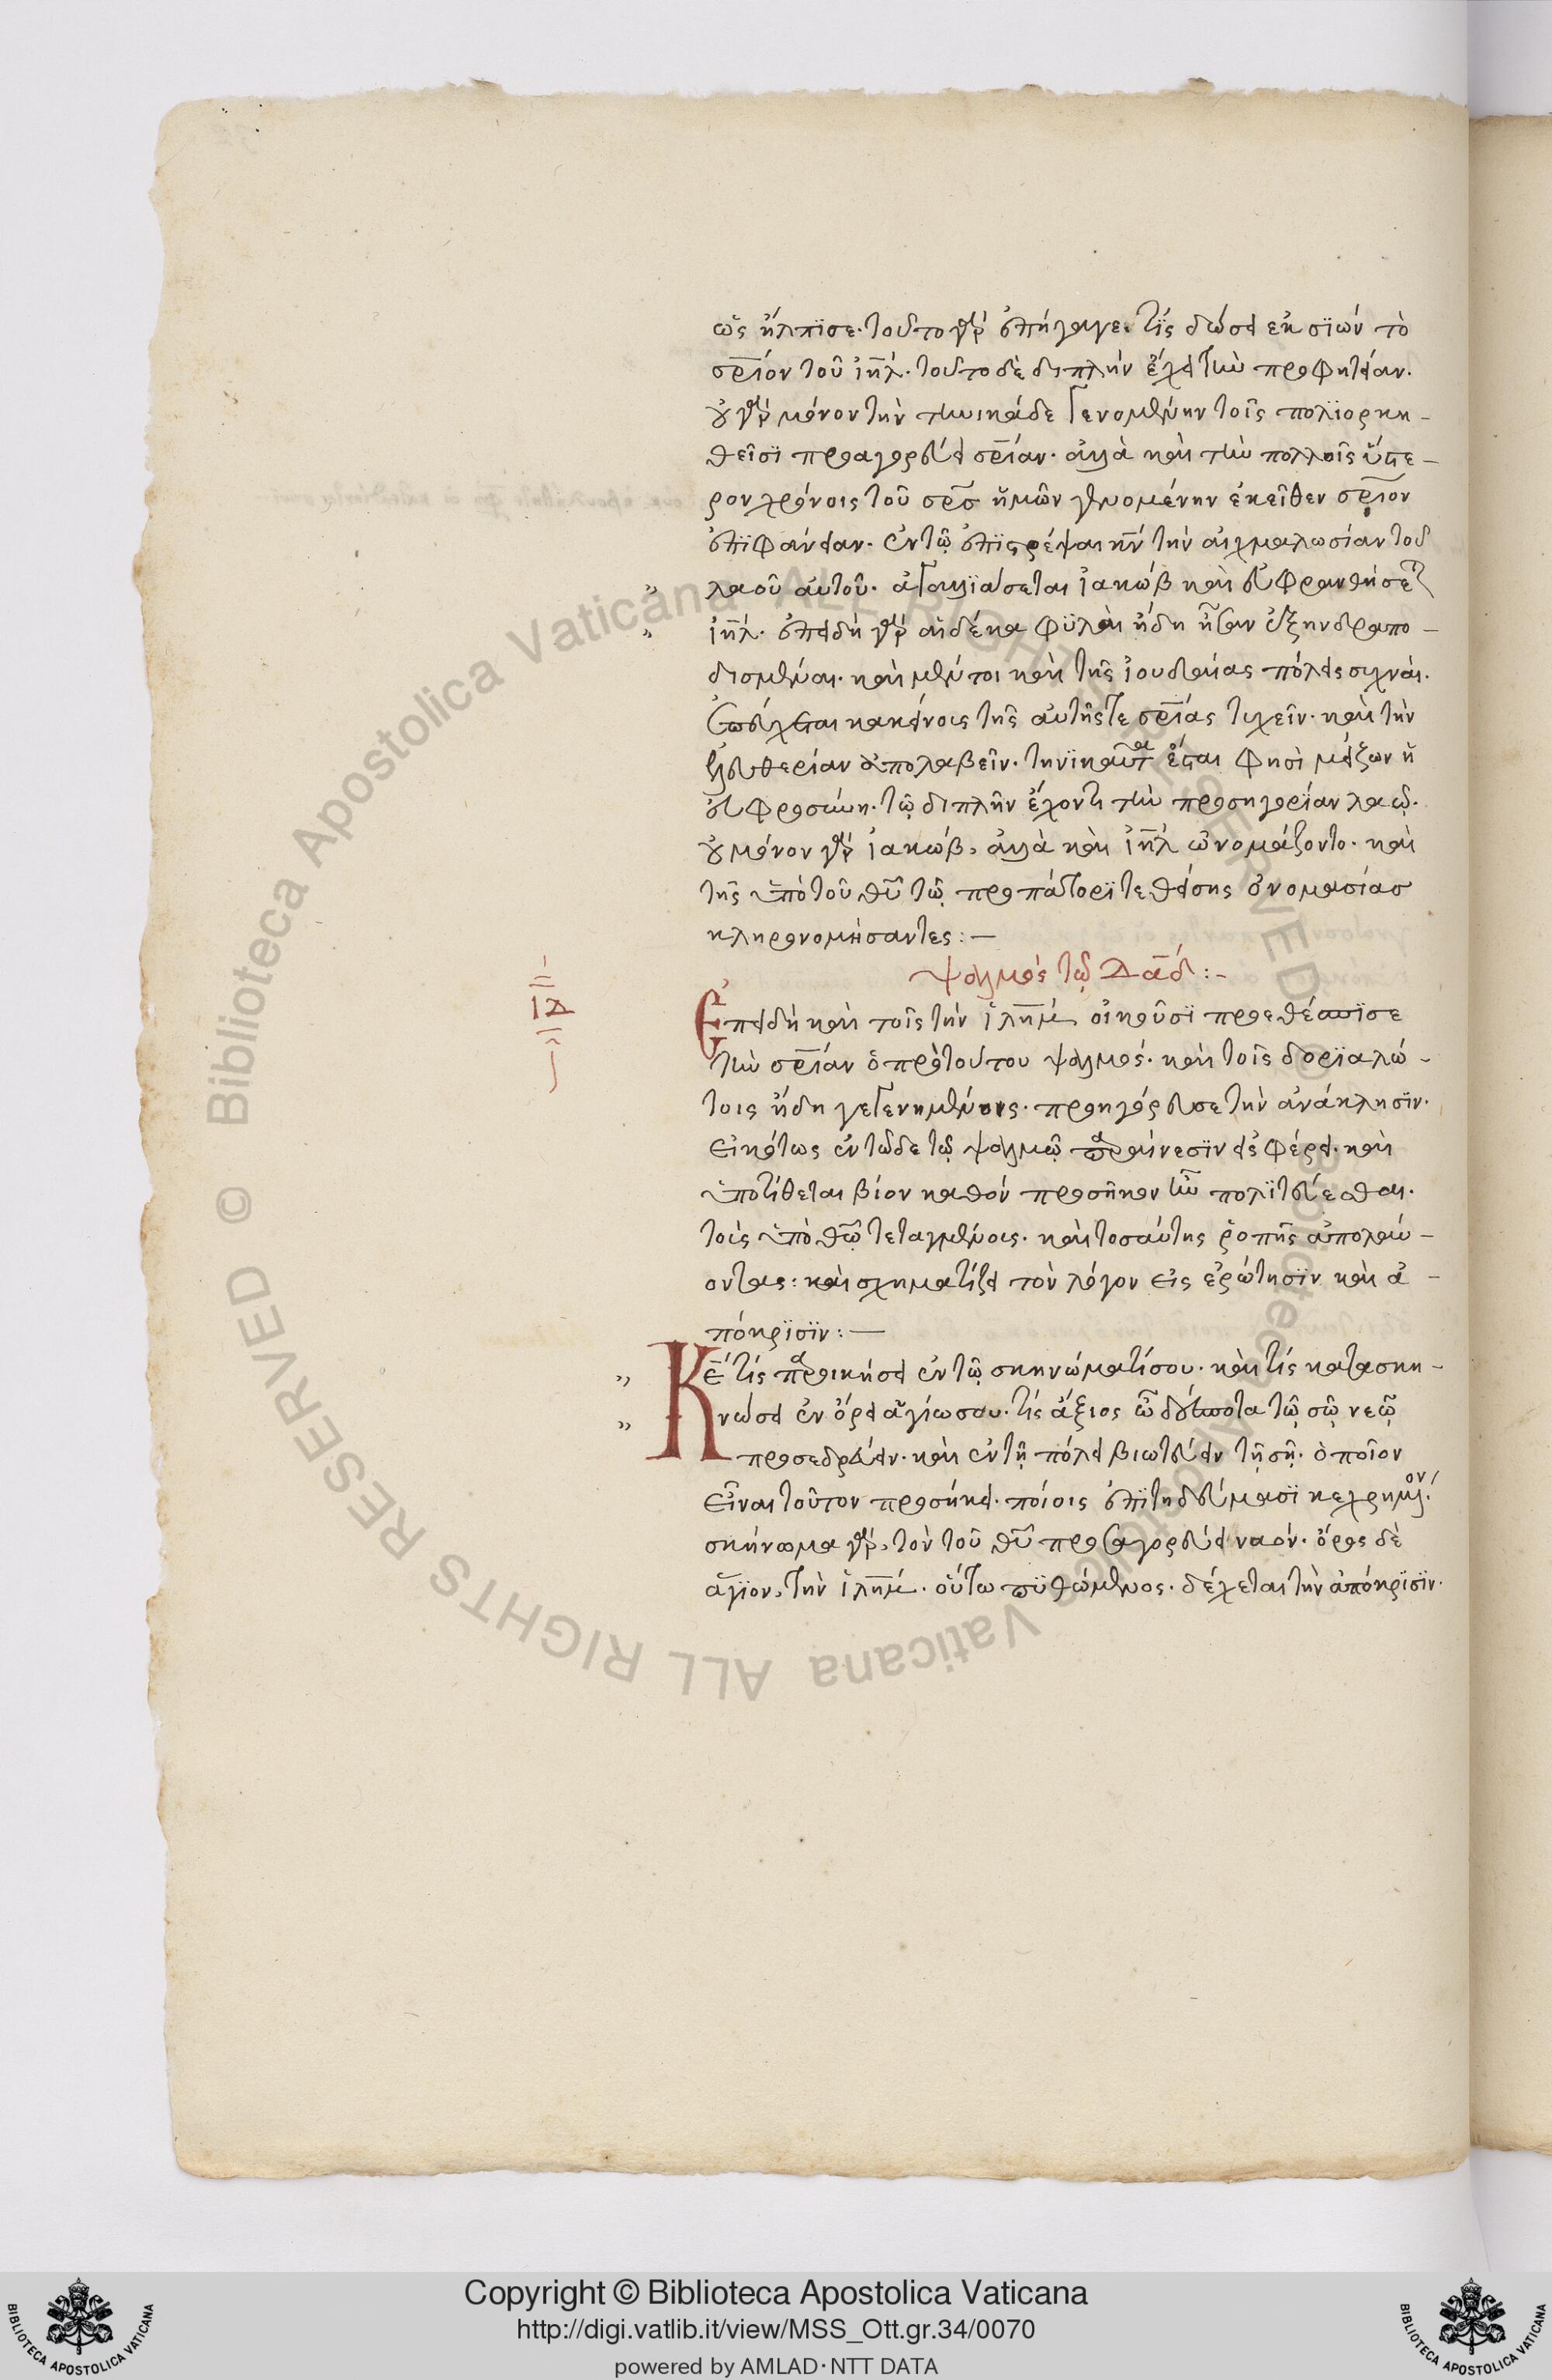 ὡς ἤλπϊσε· τοῦτο γὰρ ἐπήγαγε· τίς δώσει ἐκ σϊών τὸ
σρ̅ιόν τοῦ ἰη̅λ· τοῦτο δὲ διπλὴν ἔχει τὴν προφητείαν·
οὐ γὰρ μόνον τὴν τηνικάδε γενομένην τοῖς πολϊορκη-
θεῖσϊ προαγορεύει σρ̅ίαν· ἀλλὰ καὶ τὴν πολλοῖς ὕστε-
ρον χρόνοις τοῦ σρ̅σ ἡμῶν γενομένην ἐκεῖθεν σρ̅ιον
ἐπϊφάνειαν· ἐν τῷ ἐπϊστρέψαι κ̅ν τὴν αἰχμαλωσίαν τοῦ
λαοῦ αὐτοῦ· ἀγαλλϊάσεται ἰακώβ καὶ εὐφρανθήσετ
ἰη̅λ· ἐπειδὴ γὰρ αἱ δέκα φϋλαὶ ἤδη ἦσαν ἐξηνδραπο-
δισμέναι· καὶ μέντοι καὶ τῆς ἰουδαίας πόλεις συχναί·
εὔχεται κακείνοις τῆς αὐτῆς τε σρ̅ίας τυχεῖν· καὶ τὴν
ἐλευθερίαν ἀπολαβεῖν· τηνϊκαῦτα ἔσται φησὶ μείζων ἡ
εὐφροσύνη· τῷ διπλῆν ἔχοντι τὴν προσηγορίαν λαῷ·
οὐ μόνον γὰρ ἰακώβ, ἀλλὰ καὶ ἰη̅λ ὠνομάζοντο· καὶ
τῆς ὑπὸ τοῦ θ̅υ τῷ προπάτορϊ τεθείσης ὀνομασίασ
κληρονομήσαντες:—
ψαλμός τῷ Δα̅δ:-
ΙΔ
Ἐπειδὴ καὶ τοῖς τὴν ἰλη̅μ οἰκοῦσϊ προεθέσπϊσε
τὴν σρ̅ίαν ὁ πρὸ τούτου ψαλμός· καὶ τοῖς δορϊαλώ-
τοις ἤδη γεγενημένοις· προηγόρευσε τὴν ἀνάκλησϊν·
εἰκότως ἐν τῷδε τῷ ψαλμῷ παραίνεσϊν εἰσφέρει· καὶ
ὑποτίθεται βίον καθόν προσῆκον τῶ πολϊτεύεσθαι·
τοὺς ὑπὸ θῶ τεταγμένοις· καὶ τοσαύτης ῥοπῆς ἀπολαύ-
οντας: καὶ σχηματίζει τὸν λόγον εἰς ἐρώτησϊν καὶ ἀ-
πόκρϊσϊν:—
Κ̅ε τίς παροικήσει ἐν τῷ σκηνώματί σου· καὶ τίς κατασκη-
νώσει ἐν ὄρει ἁγίω σου· τίς ἄξιος ὦ δέσποτα τῷ σῷ νεῷ
προσεδρεύειν· καὶ ἐν τῇ πόλει βιωτεύειν τῇ σῇ· ὁποῖον
εἶναι τοῦτον προσήκει· ποίοις ἐπϊτηδεύμασϊ κεχρημένον·
σκήνωμα γὰρ, τὸν τοῦ θ̅υ προσαγορεύει ναόν· ὄρος δὲ
ἅγϊον, τὴν ἰλη̅μ· οὕτω πϋθώμενος· δέχεται τὴν ἀπόκρϊσϊν·
Copyright © Biblioteca Apostolica Vaticana
http://digi.vatlib.it/view/MSS_Ott.gr.34/0070
powered by AMLAD·NTT DATA